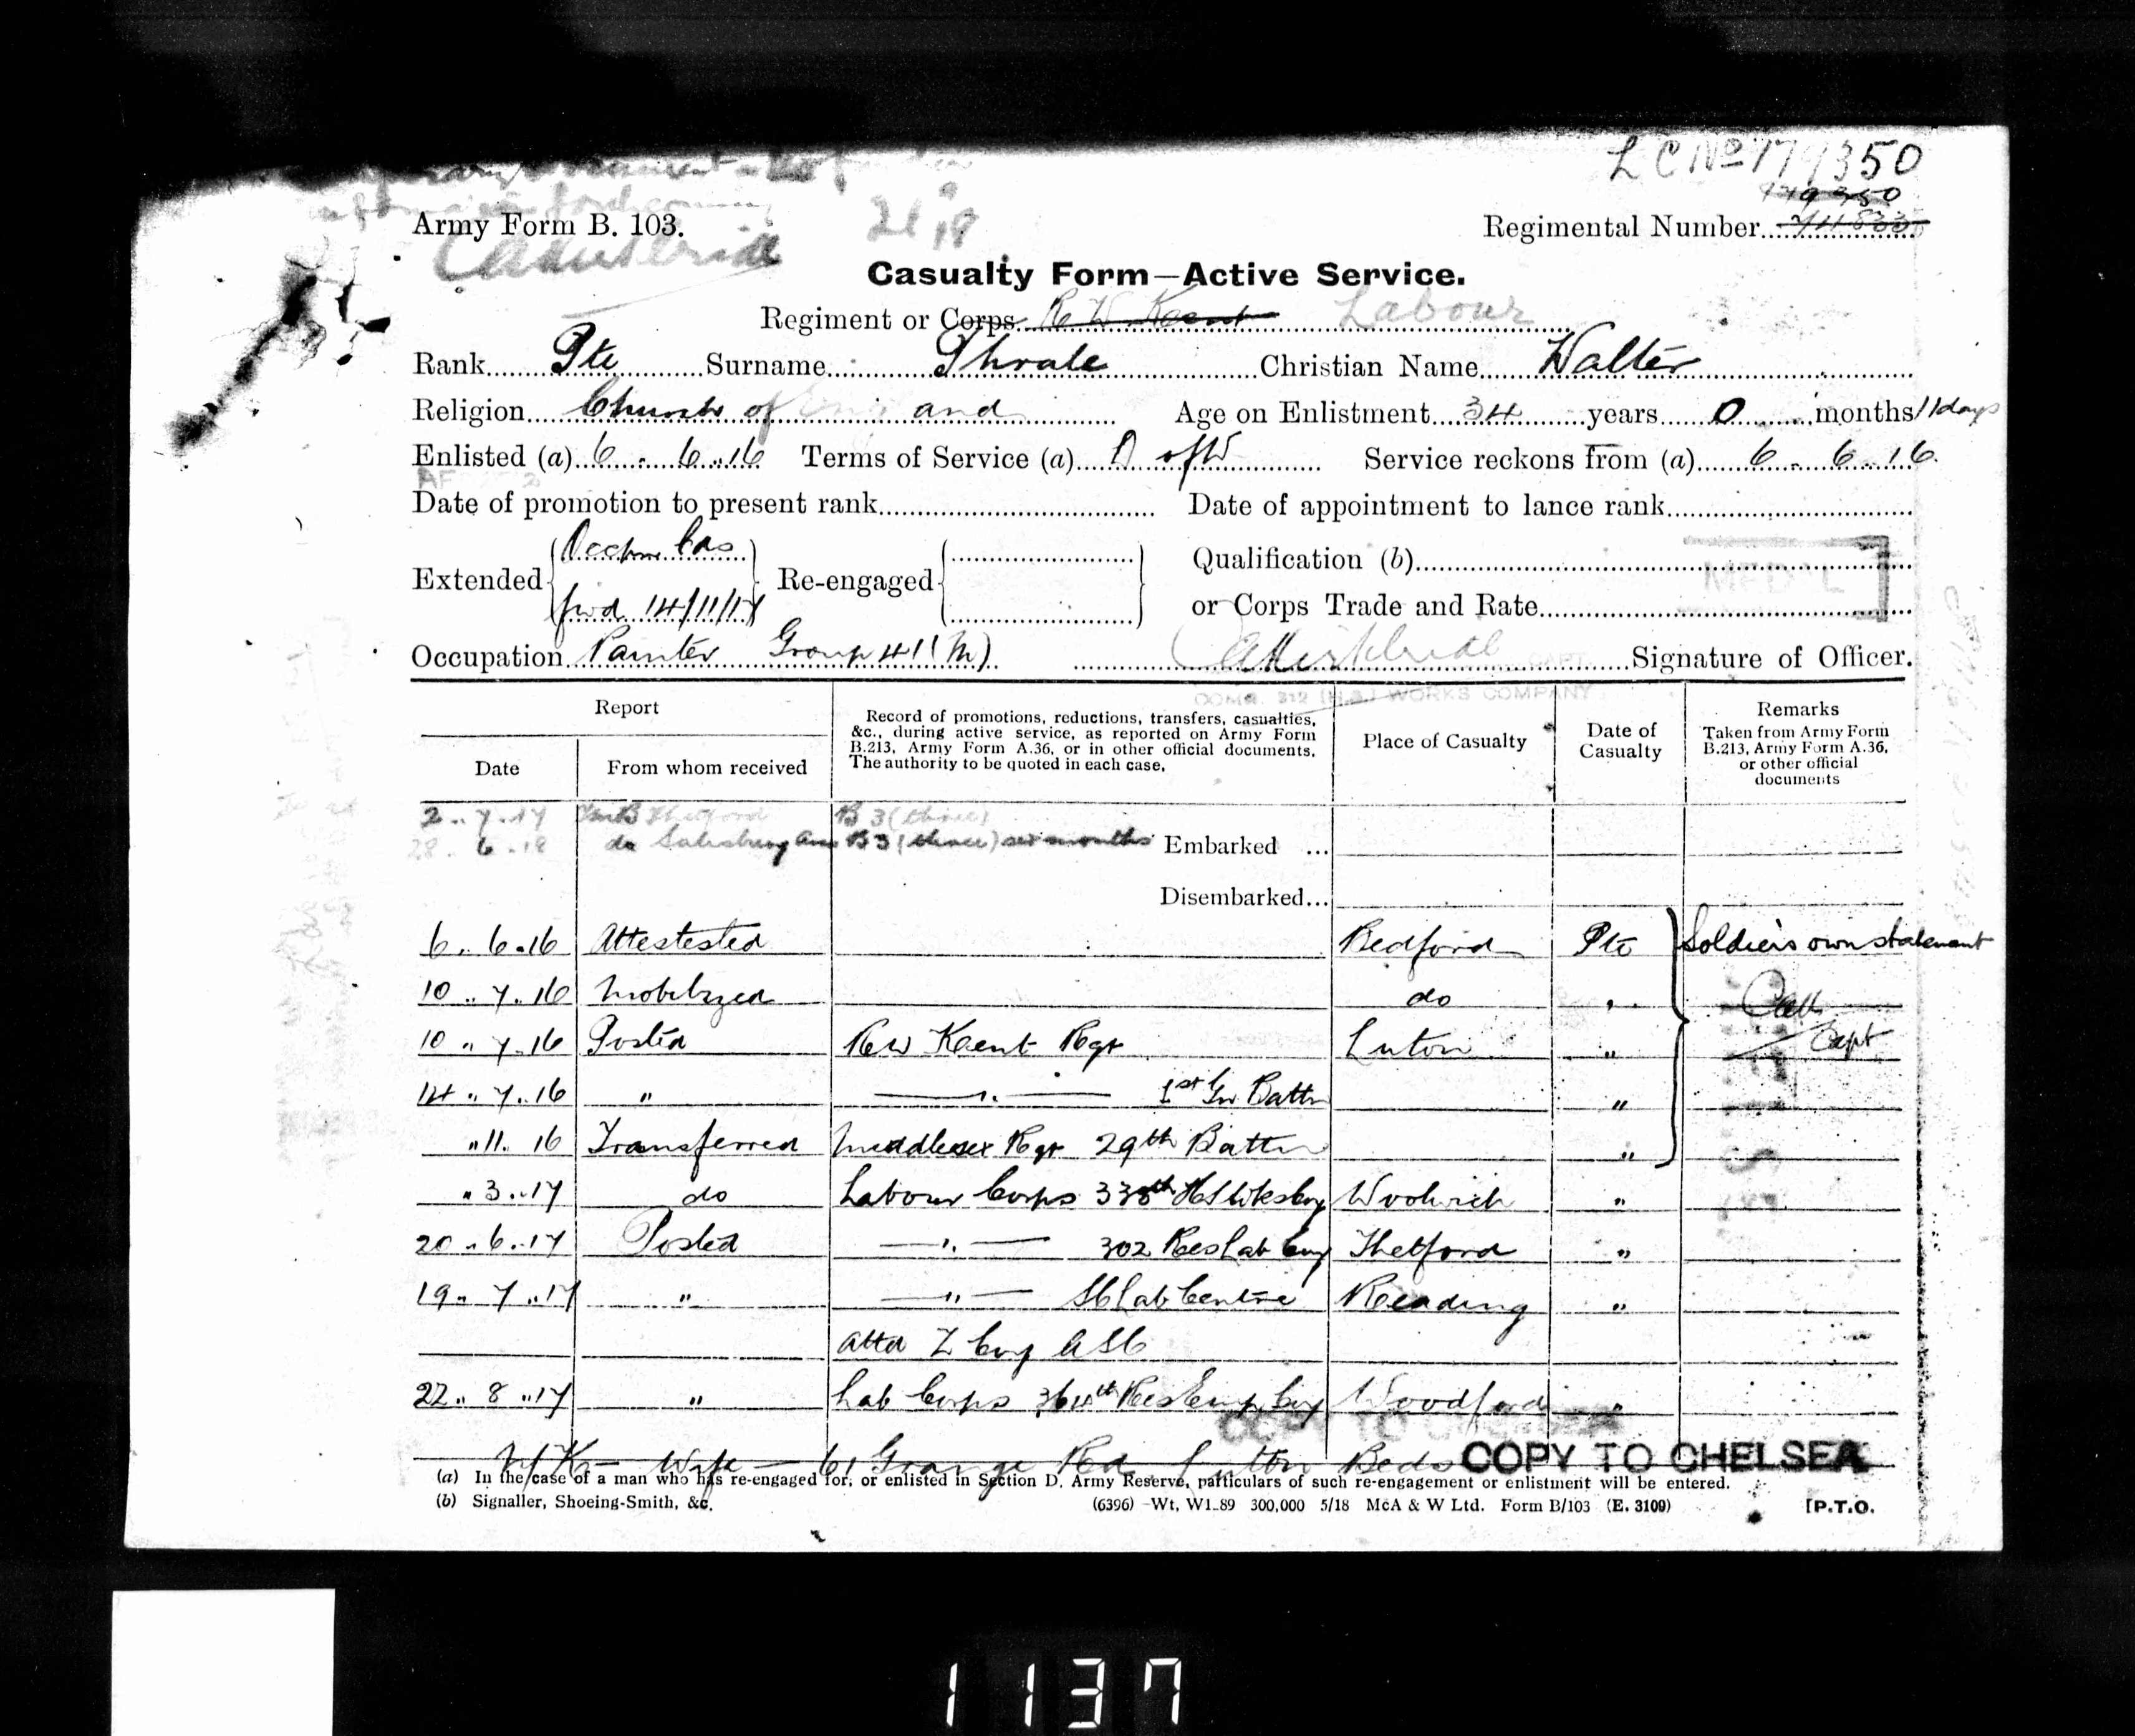 L C No 179350
179350
Army Form B. 103.
Regimental Number
21 9 18
Casualty Form—Active Service.
Regiment or Corps R W Kent Labour
Rank Pte Surname Thrale Christian Name Walter
Religion Church of and Age on Enlistment 34 years 0 months 11 days
Enlisted (a) 6 . 6 .. 16 Terms of Service (a) D of W Service reckons from (a) 6 . 6 .. 16.
Date of promotion to present rank Date of appointment to lance rank
Extended Occpn Cas fwd 14/11/17 Re-engaged Qualification (b)
or Corps Trade and Rate
MEDAL
Occupation Painter Group 41 (M) CAPT. Signature of Officer.
COMG. 312 (H.S.) WORKS COMPANY
Report
Date From whom received
Record of promotions, reductions, transfers, casualties, &c., during active service, as reported on Army Form B.213, Army Form A.36, or in other official documents. The authority to be quoted in each case.
Place of Casualty
Date of Casualty
Remarks
Taken from Army Form B.213, Army Form A.36, or other official documents
2 .. 7 .. 17 Thetford B 3 (three)
28 . 6 . 18 do Salisbury B 3 (three) six months Embarked ...
Disembarked...
6 .. 6 .. 16 Attestested Bedford Pte Soldiers own statement
10 .. 7 .. 16 Mobilyzed do "
Capt
10 .. 7 .. 16 Posted R W Kent Rgt Luton "
14 .. 7 .. 16 " — " — 1st Gn Battn "
" 11 .. 16 Transferred Middlesex Rgt 29th Battn "
" 3 .. 17 do Labour Corps 338th H S Wks Coy Woolwich "
20 .. 6 .. 17 Posted — " — 302 Res Lab Coy Thetford "
19 .. 7 .. 17 " — " — S C Lab Centre Reading "
attd Z Coy A S C
22 .. 8 .. 17 " Lab Corps 364th Res Emp Coy Woodford "
COPY TO CHELSEA
N/K — Wife — 61 Grange Rd Luton Beds COPY TO CHELSEA
(a) In the case of a man who has re-engaged for, or enlisted in Section D. Army Reserve, particulars of such re-engagement or enlistment will be entered.
(b) Signaller, Shoeing-Smith, &c. (6396) Wt. W1 89 300,000 5/18 McA & W Ltd. Form B/103 (E. 3109) [P.T.O.
1137